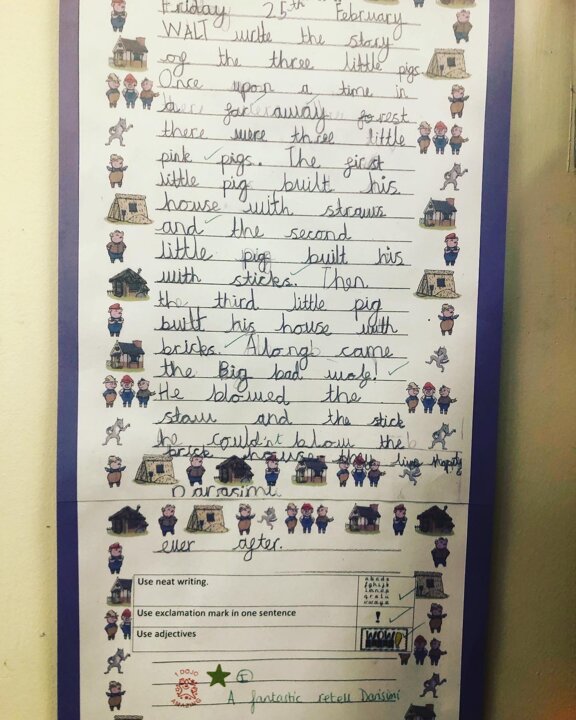 Friday 25th February
WALT write the story
of the three little pigs
Once upon a time in
a far away forest
there were three little
pink pigs. The first
little pig built his
house with straws
and the second
little pig built his
with sticks. Then
the third little pig
built his house with
bricks. Along came
the Big bad wolf!
He blowed the
staw and the stick
he couldn't blow the
brick house they live Happily
Darasimi
ever after.
Use neat writing.
Use exclamation mark in one sentence
!
Use adjectives
WOW!
1 DOJO
I
A fantastic retell Darisimi